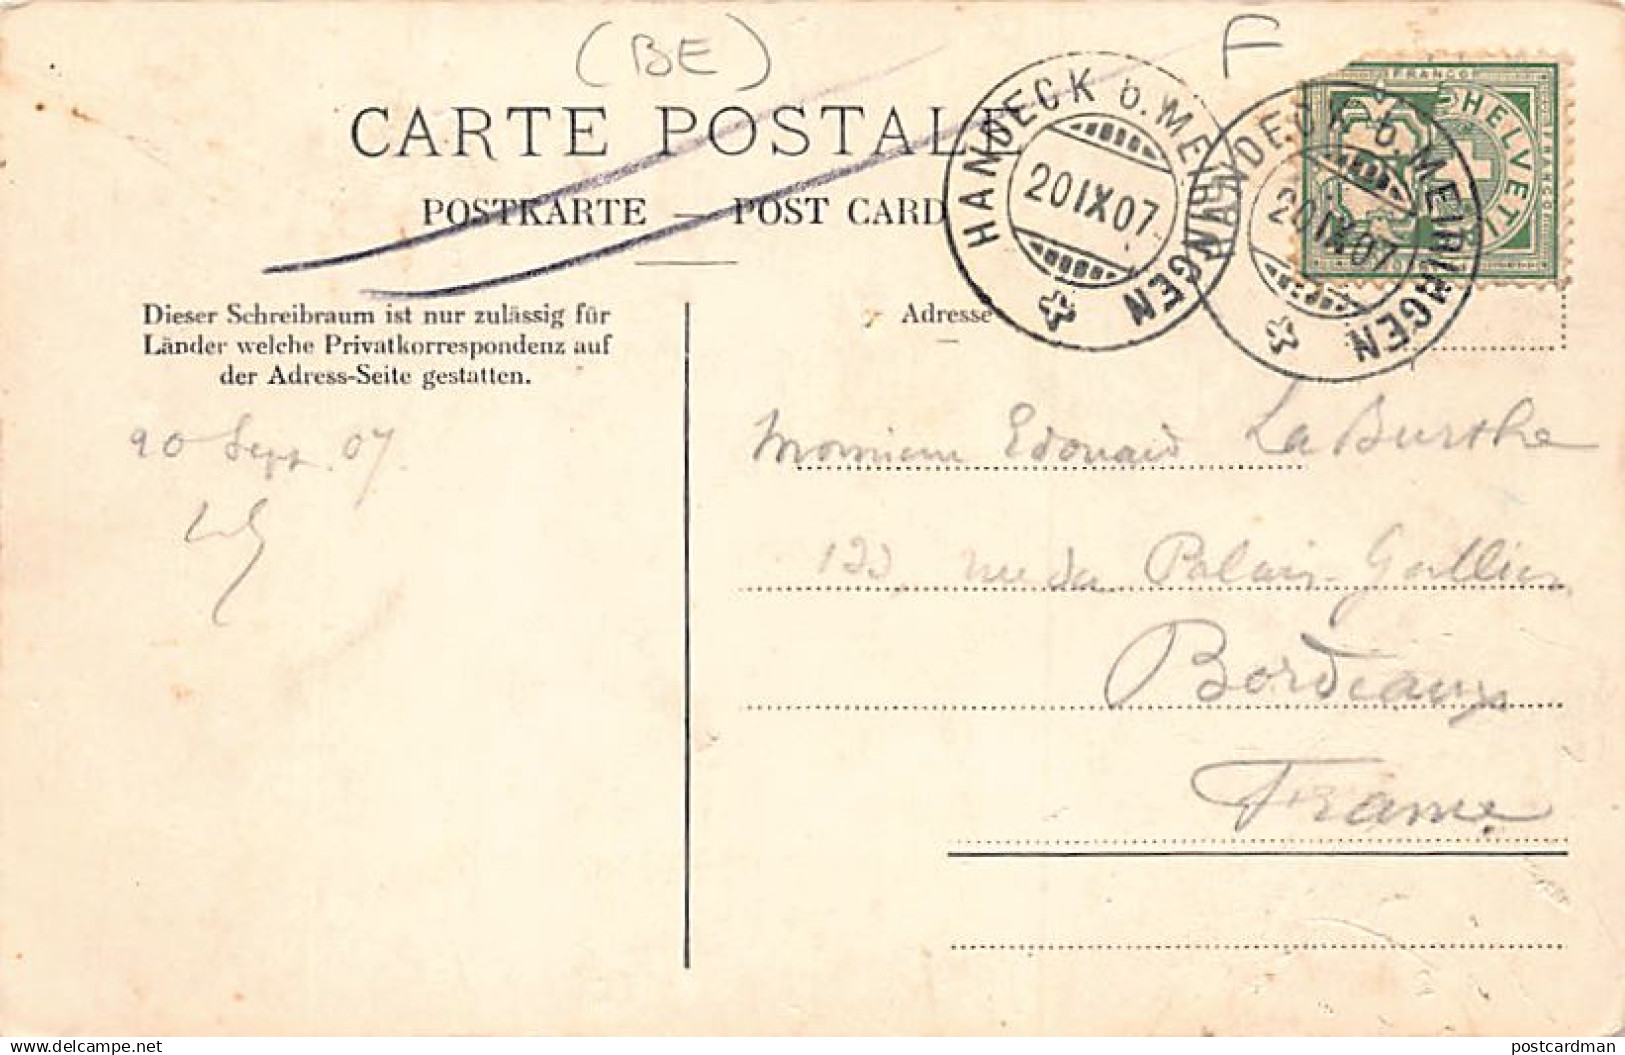 (BE)
F
CARTE POSTALE
POSTKARTE — POST CARD
HANDECK b. MEIRINGEN
20 IX 07
HANDECK b. MEIRINGEN
20 IX 07
FRANCO
HELVETIA
Dieser Schreibraum ist nur zulässig für
Länder welche Privatkorrespondenz auf
der Adress-Seite gestatten.
Adresse
20 Sept. 07
Monsieur Edouard LaBurthe
133, rue du Palais-Gallien
Bordeaux
France
delcampe.net
postcardman